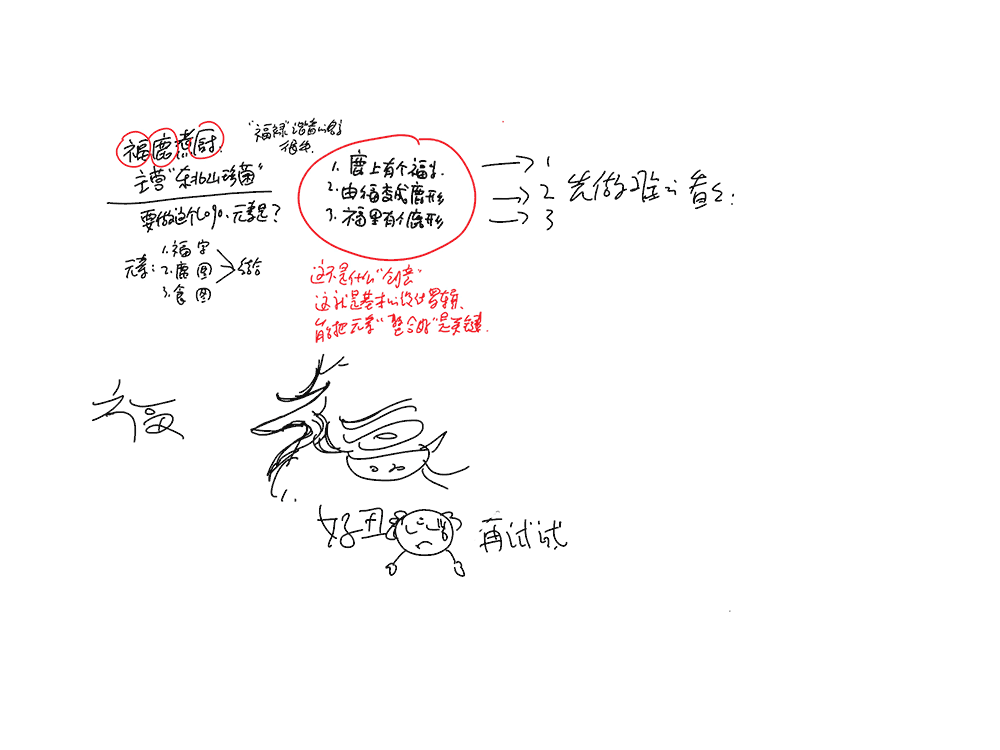 福鹿煮厨
"福禄"谐音的名字
很绝.
主营"东北山珍菌"
要做这个logo、元素是?
元素:
1.福字
2.鹿图
3.食图
结合
1. 鹿上有个福字.
2.由福变成鹿形
3.福里有个鹿形
1
2 先做难的看看.
3
这不是什么"创意"
这就是基本的设计逻辑、
能把元素"整合好"是关键.
福
好丑
再试试